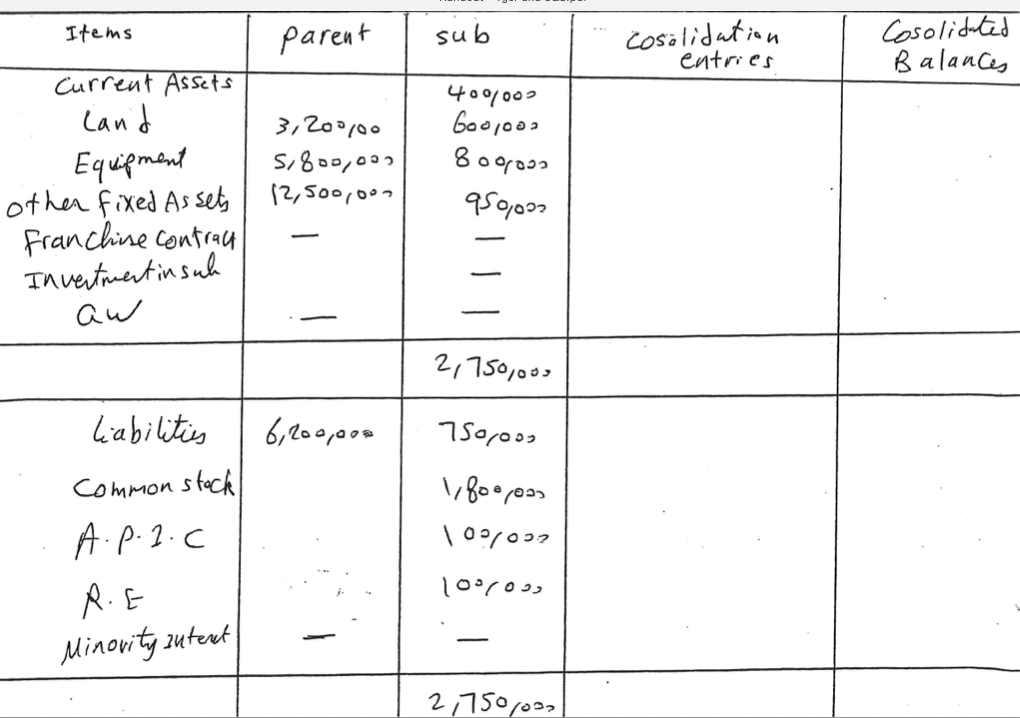 Items parent sub Cosolidation entries Cosolidated Balances
Current Assets 400,000
Land 3,200,00 600,000
Equipment 5,800,000 800,000
other fixed Assets 12,500,000 950,000
Franchise Contract — —
Investment in sub —
GW — —
2,750,000
Liabilities 6,200,000 750,000
Common stock 1,800,000
A.P.I.C 100,000
R.E 100,000
Minority Interest — —
2,750,000